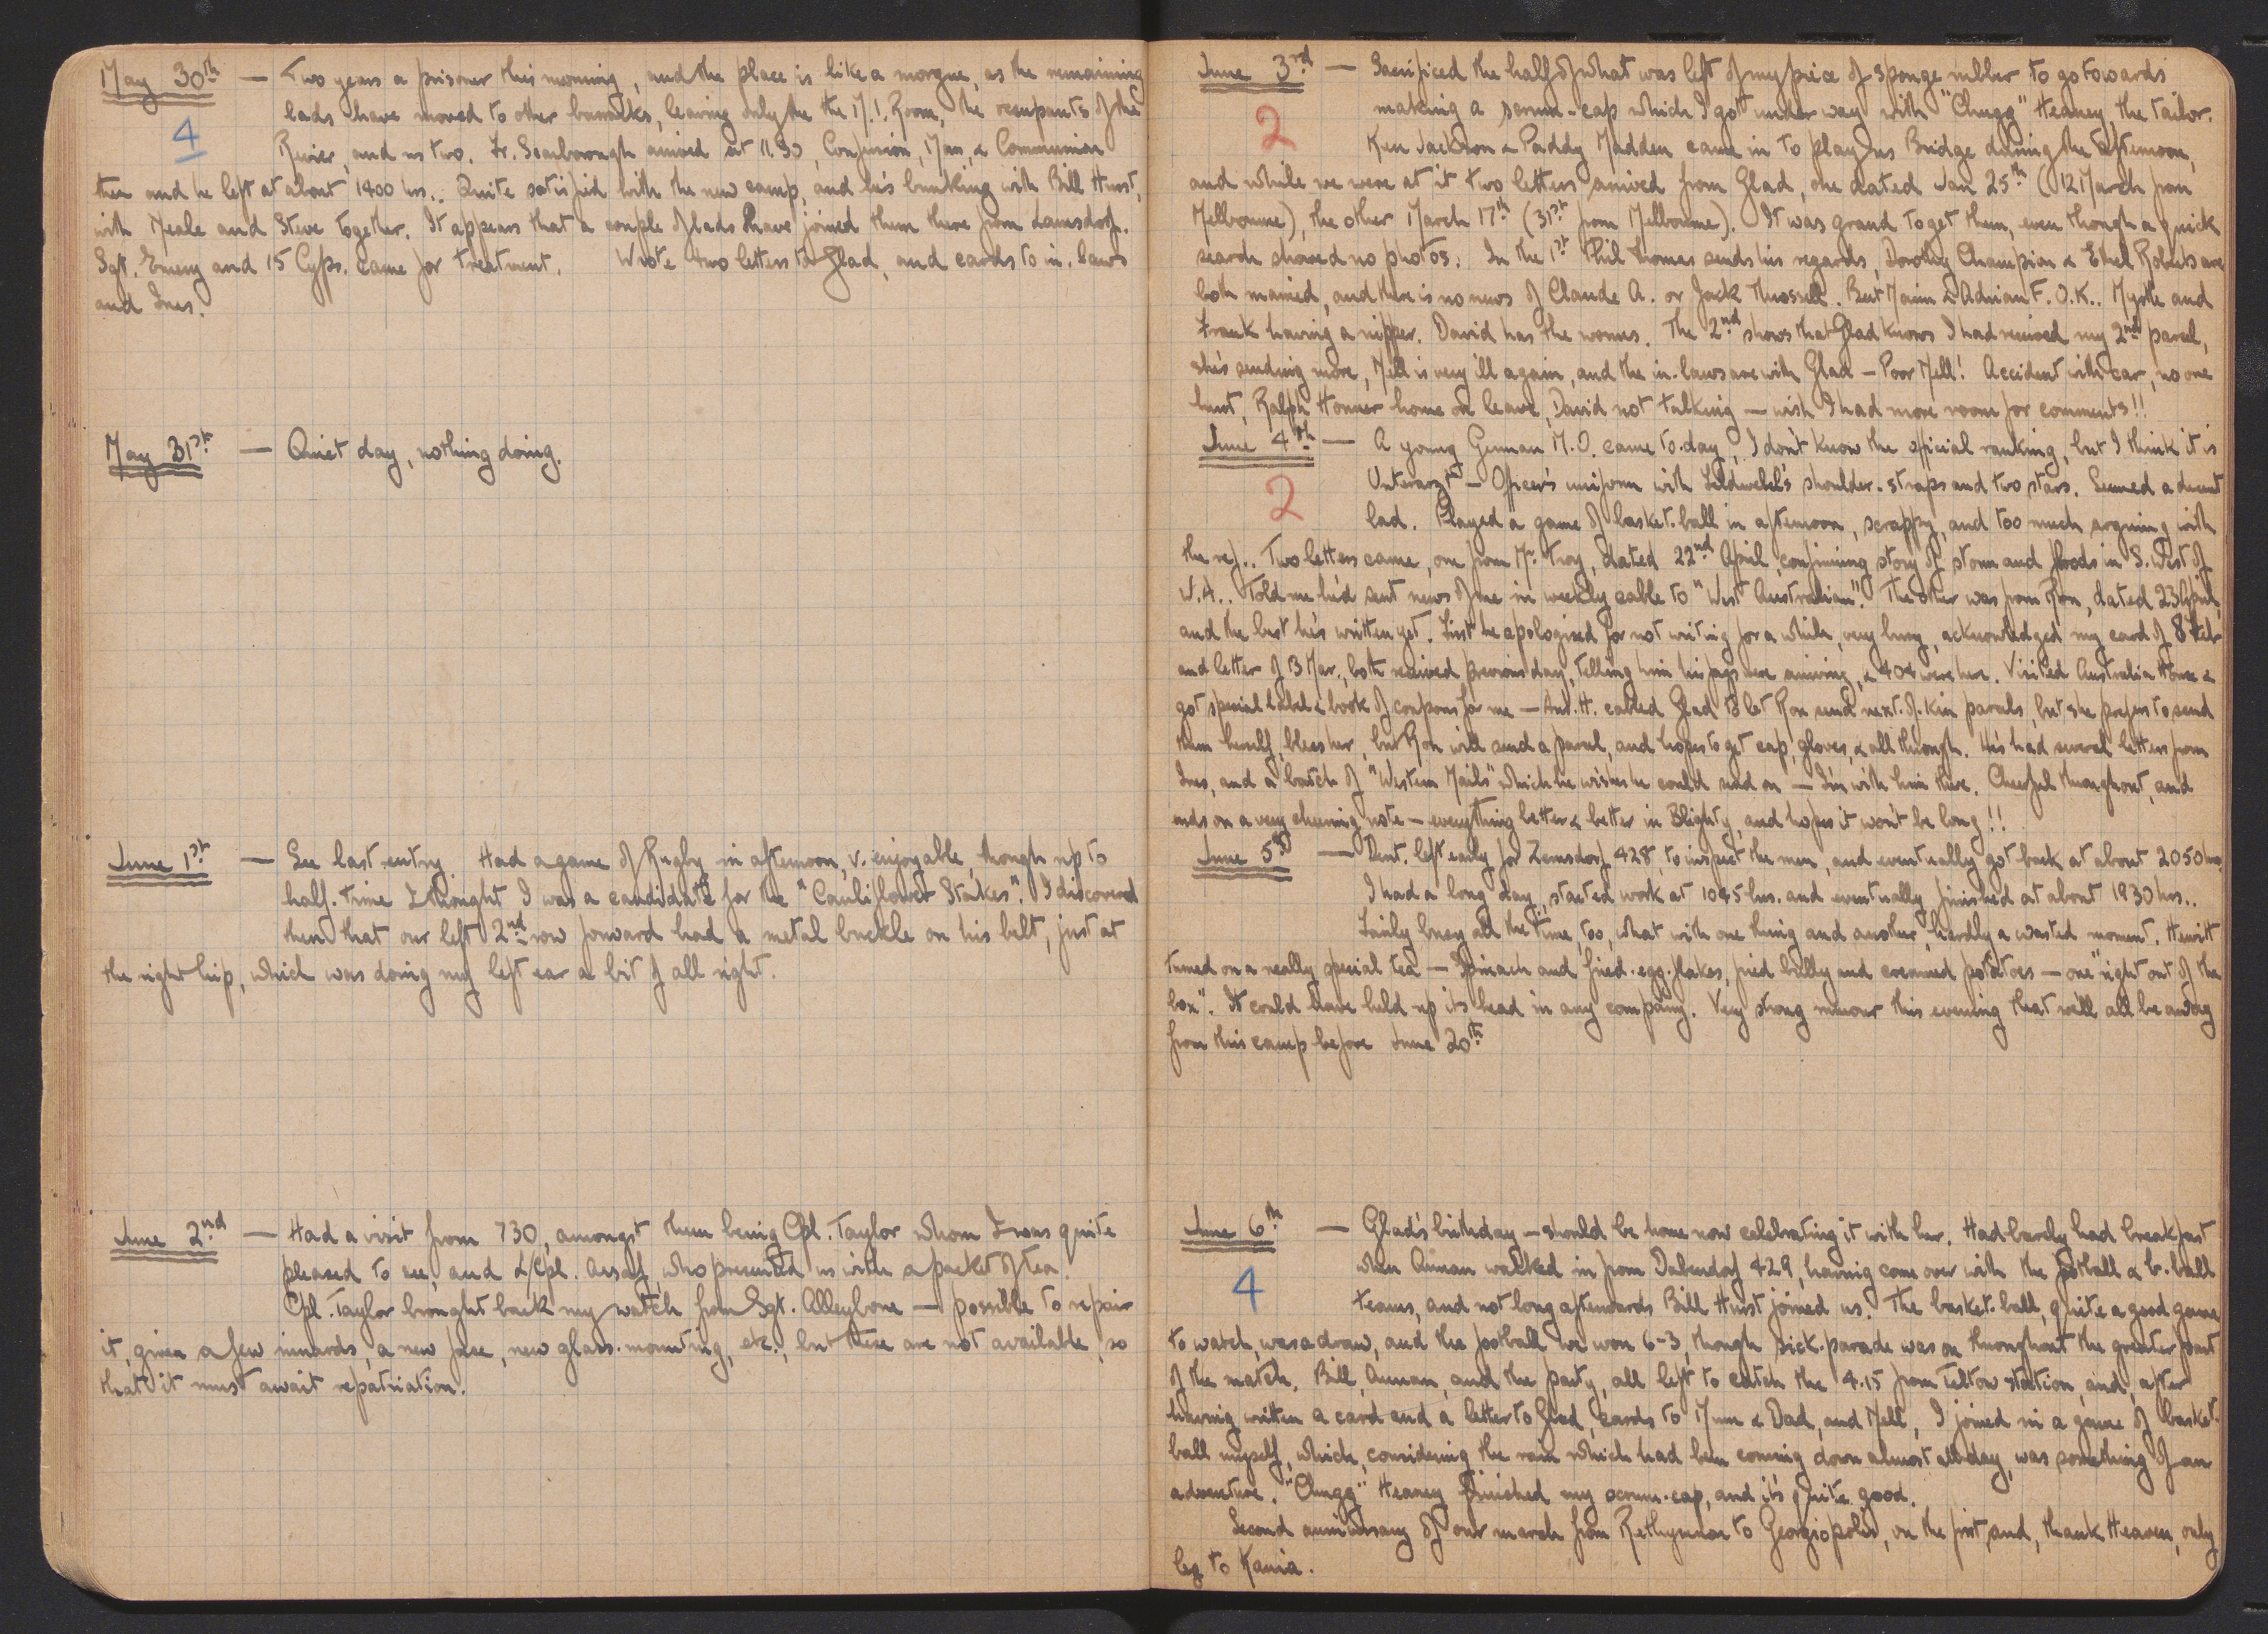 May 30th — Two years a prisoner this morning, and the place is like a morgue, as the remaining
4
lads have moved to other barracks, leaving only the the M.I. Room, the occupants of the
Revier, and us two. Fr. Scarborough arrived at 11.30, Confession, Mass, & Communion
then and he left at about 1400 hrs.. Quite satisfied with the new camp, and he's bunking with Bill Hurst,
with Neale and Steve together. It appears that a couple of lads have joined them there from Lamsdorf.
Sgt. Emery and 15 Cyps. came for treatment. Wrote two letters to Glad, and cards to in-laws
and Ines.
May 31st — Quiet day, nothing doing.
June 1st — See last entry. Had a game of Rugby in afternoon, v. enjoyable, though up to
half-time I thought I was a candidate for the "Cauliflower Stakes". I discovered
then that our left 2nd row forward had a metal buckle on his belt, just at
the right hip, which was doing my left ear a bit of all right.
June 2nd — Had a visit from 730, amongst them being Cpl. Taylor whom I was quite
pleased to see, and L/Cpl. who presented us with a packet of tea.
Cpl. Taylor brought back my watch from Sgt. Alleybone — possible to repair
it, given a few innards, a new face, new glass-mounting, etc., but these are not available, so
that it must await repatriation.
June 3rd — Sacrificed the half of what was left of my piece of sponge rubber to go towards
2
making a scrum-cap which I got under way with "Chugg" Heaney, the tailor.
Ken Jackson & Paddy Madden came in to play us Bridge during the afternoon,
and while we were at it two letters arrived from Glad, one dated Jan 25th (12 March from
Melbourne), the other March 17th (31st from Melbourne). It was grand to get them, even though a quick
search showed no photos. In the 1st Phil Thomas sends his regards, Dorothy Champion & Ethel Roberts are
both married, and there is no news of Claude A. or Jack Thossell. But Mann & Adrian F. O.K.. Myrtle and
Frank having a nipper. David has the worms. The 2nd shows that Glad knows I had received my 2nd parcel,
she's sending more, Nell is very ill again, and the in-laws are with Glad — Poor Nell! Accident with car, no one
hurt, Ralph Honner home on leave, David not talking — wish I had more room for comments!!
June 4th — A young German M.O. came to-day, I don't know the official ranking, but I think it is
2
Unterarzt — Officer's uniform with Feldwebel's shoulder-straps and two stars. Seemed a decent
lad. Played a game of basket-ball in afternoon, scrappy, and too much arguing with
the ref.. Two letters came, one from Mr. Troy, dated 22nd April, confirming story of storm and floods in S. West of
W.A.. Told me he'd sent news of me in weekly cable to "West Australian". The other was from Ron, dated 23 April,
and the best he's written yet. First he apologised for not writing for a while, very busy, acknowledged my card of 8 Feb
and letter of 13 Mar., both received previous day, telling him his were arriving, & 404 were here. Visited Australia House &
got special label & book of coupons for me — Aus. H. cabled Glad to let Ron send next-of-kin parcels, but she prefers to send
them herself, bless her, but Ron will send a parcel, and hopes to get cap, gloves, & all through. He's had several letters from
Ines, and a batch of "Western Mails" which he wishes he could send on — I'm with him there. Cheerful throughout, and
ends on a very cheering note — everything better & better in Blighty, and hopes it won't be long!!
June 5th — Dent. left early for Zernsdorf 428, to inspect the men, and eventually got back at about 2050 hrs.
I had a long day, started work at 1045 hrs. and eventually finished at about 1930 hrs..
Fairly busy all the time, too, what with one thing and another, hardly a wasted moment. Hewitt
turned on a really special tea — Spinach and fried-egg-flakes, fried bully and creamed potatoes — one "right out of the
box". It could have held up its head in any company. Very strong rumour this evening that we'll all be away
from this camp before June 20th.
June 6th — Glad's birthday — should be home now celebrating it with her. Had barely had breakfast
4
when Annan walked in from Dabendorf 429, having come over with the football & b.-ball
teams, and not long afterwards Bill Hurst joined us. The basket-ball, quite a good game
to watch, was a draw, and the football we won 6-3, though sick-parade was on throughout the greater part
of the match. Bill, Annan, and the party, all left to catch the 4.15 from Teltow station, and, after
having written a card and a letter to Glad, cards to Mum & Dad, and Nell, I joined in a game of basket-
ball myself, which, considering the rain which had been coming down almost all day, was something of an
adventure. "Chugg" Heaney finished my scrum-cap, and it's quite good.
Second anniversary of our march from Rethymnon to Georgiopolis, on the first, and, thank Heaven, only
leg to Kania.